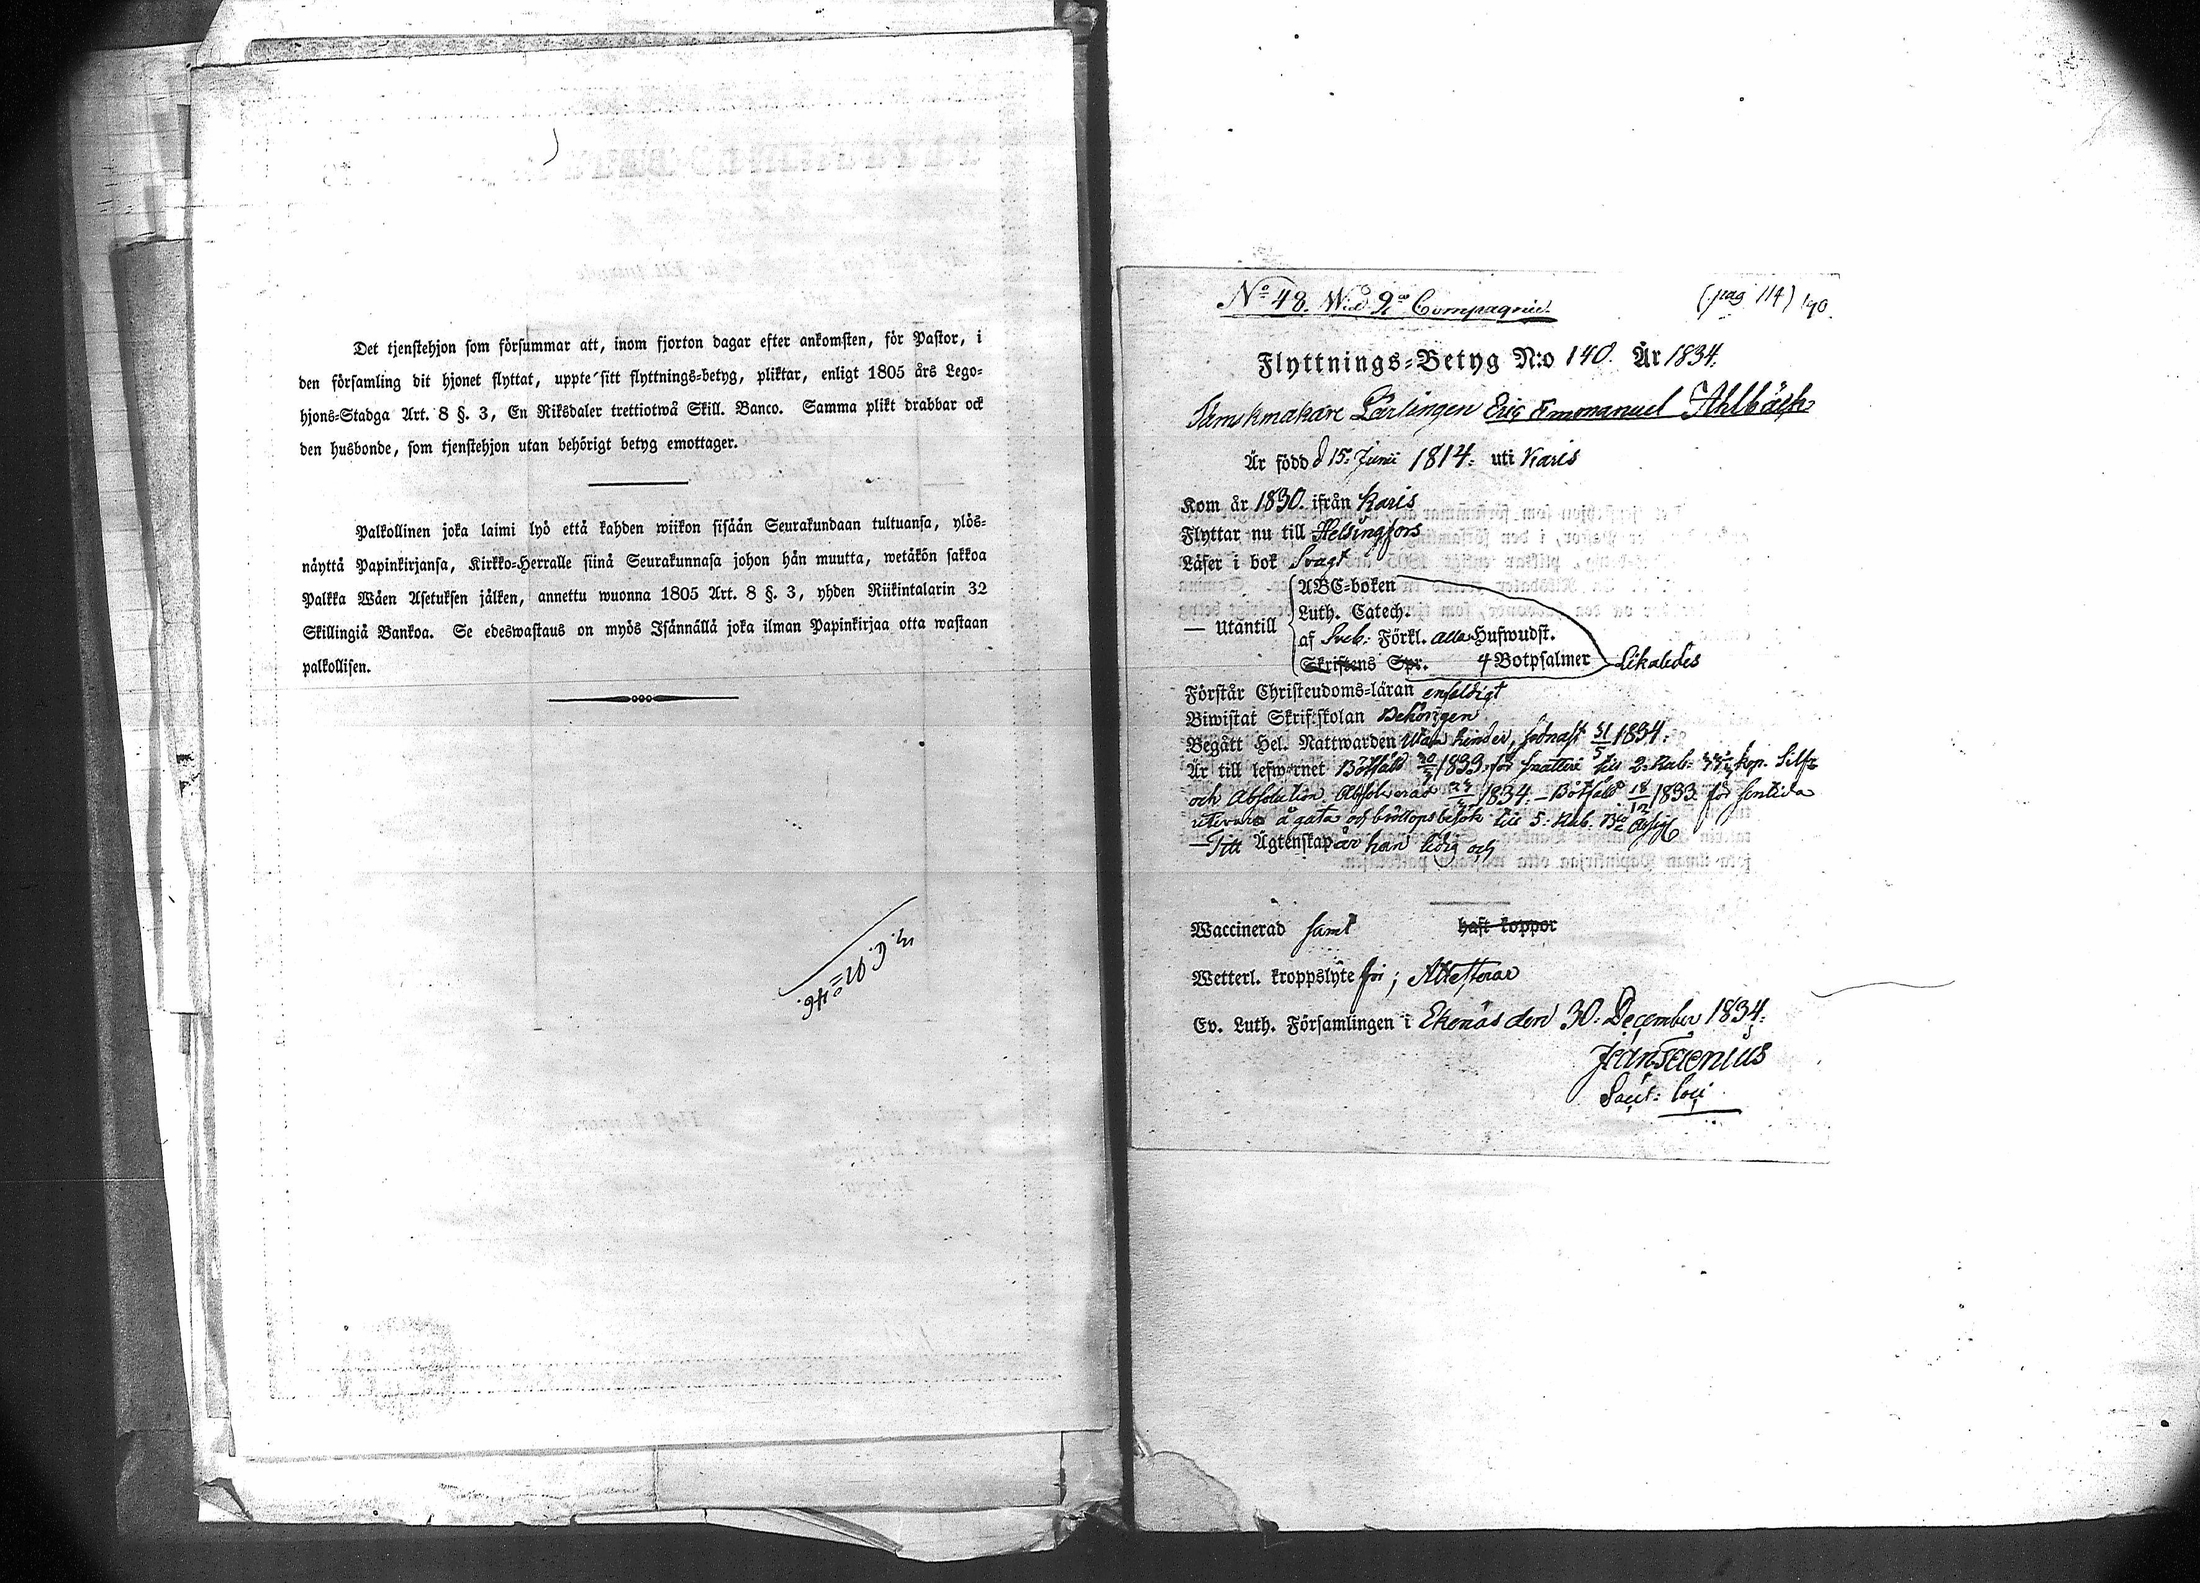 Det tjenstehjon som försummar att, inom fjorton dagar efter ankomsten, för Pastor, i
den församling dit hjonet flyttat, uppte sitt flyttnings-betyg, pliktar, enligt 1805 års Lego-
hjons-Stadga Art. 8 §. 3, En Riksdaler trettiotwå Skill. Banco. Samma plikt drabbar ock
den husbonde, som tjenstehjon utan behörigt betyg emottager.
Palkollinen joka laimi lyö että kahden wiikon sisään Seurakundaan tultuansa, ylös-
näyttä Papinkirjansa, Kirkko-Herralle siinä Seurakunnasa johon hän muutta, wetäkön sakkoa
Palkka Wäen Asetuksen jälken, annettu wuonna 1805 Art. 8 §. 3, yhden Riikintalarin 32
Skillingiä Bankoa. Se edeswastaus on myös Isännällä joka ilman Papinkirjaa otta wastaan
palkollisen.
No 48. Wid 2:a Compagnie.
(pag 114) 190.
Flyttnings-Betyg N:o 140. År 1834.
Lärlingen Eric Emmanuel Ahlbäck
Är född d 15. Junii 1814. uti Karis
Kom år 1830. ifrån Karis
Flyttar nu till Helsingfors
Läser i bok Svagt
— Utantill
ABC-boken
Luth. Catech.
af Sveb: Förkl. alla Hufwudst.
Skriftens Spr. 4 Botpsalmer Likaledes
Förstår Christendoms-läran enfaldigt
Biwistat Skriftskolan Behörigen
Begått Hel. Nattwarden Utan hinder, sednast 31/5 1834.
Är till lefwernet Bötfäld 1833 för till 2 Rub: kop. Silfr
och Absolution 1834. — Bötfäld 18/12 1833 för sentida
å gata och bröllopsbesök till 5: Rub. B:co Assig
— Till Ägtenskap är han ledig och
Waccinerad samt haft koppor
Wetterl. kroppslyte fri; Attesterar
Ev. Luth. Församlingen i Ekenäs den 30. December 1834.
Past: loci